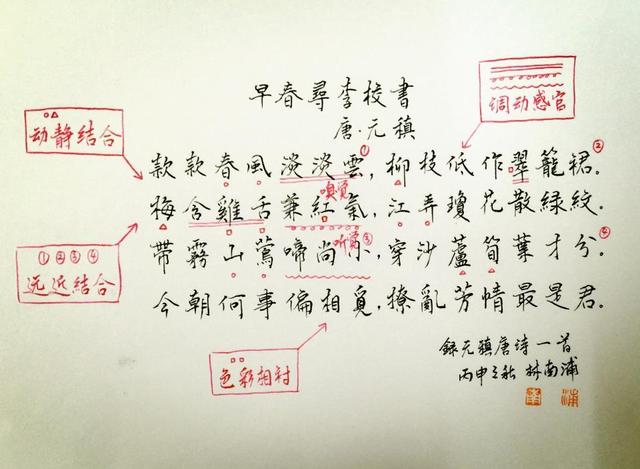 早春尋李校書
唐·元稹
调动感官
动静结合
款款春風淡淡雲，柳枝低作翠籠裙。
① ②
梅含雞舌兼紅氣，江弄瓊花散綠紋。
嗅觉
帶霧山鶯啼尚小，穿沙蘆筍葉才分。
听觉 ③ ④
①②③④
远近结合
今朝何事偏相覓，撩亂芳情最是君。
色彩相衬
録元稹唐诗一首
丙申之秋 林南浦